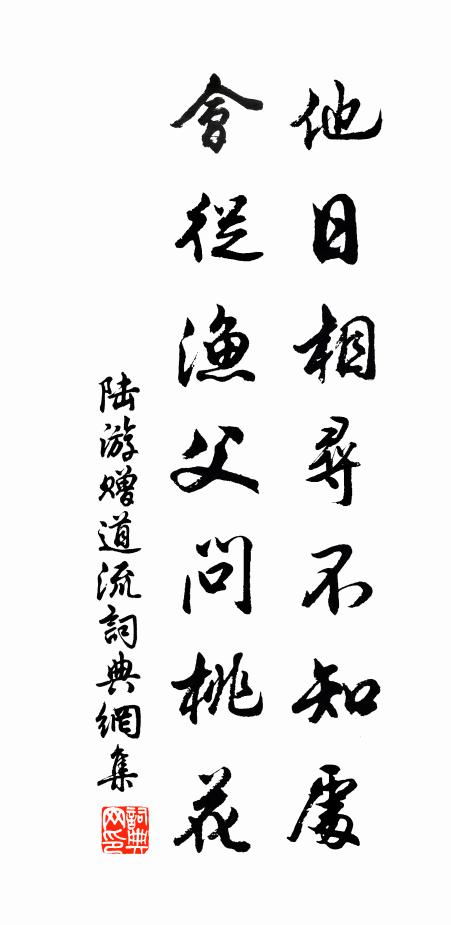 他日相尋不知處
會從漁父問桃花
陆游赠道流詞典網集
詞典网印